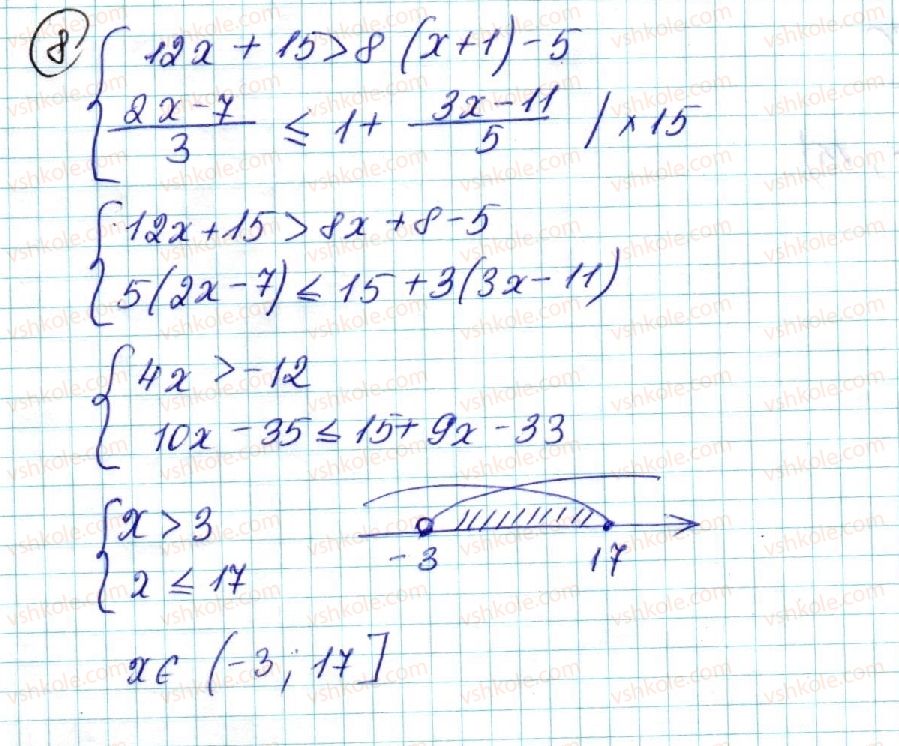 8
12x + 15 > 8 (x+1) - 5
(2x-7)/3 ≤ 1 + (3x-11)/5 / ×15
12x+15 > 8x+8-5
5(2x-7) ≤ 15 +3(3x-11)
4x > -12
10x - 35 ≤ 15+ 9x - 33
x > 3
x ≤ 17
-3 17
x∈ (-3; 17]
vshkole.com